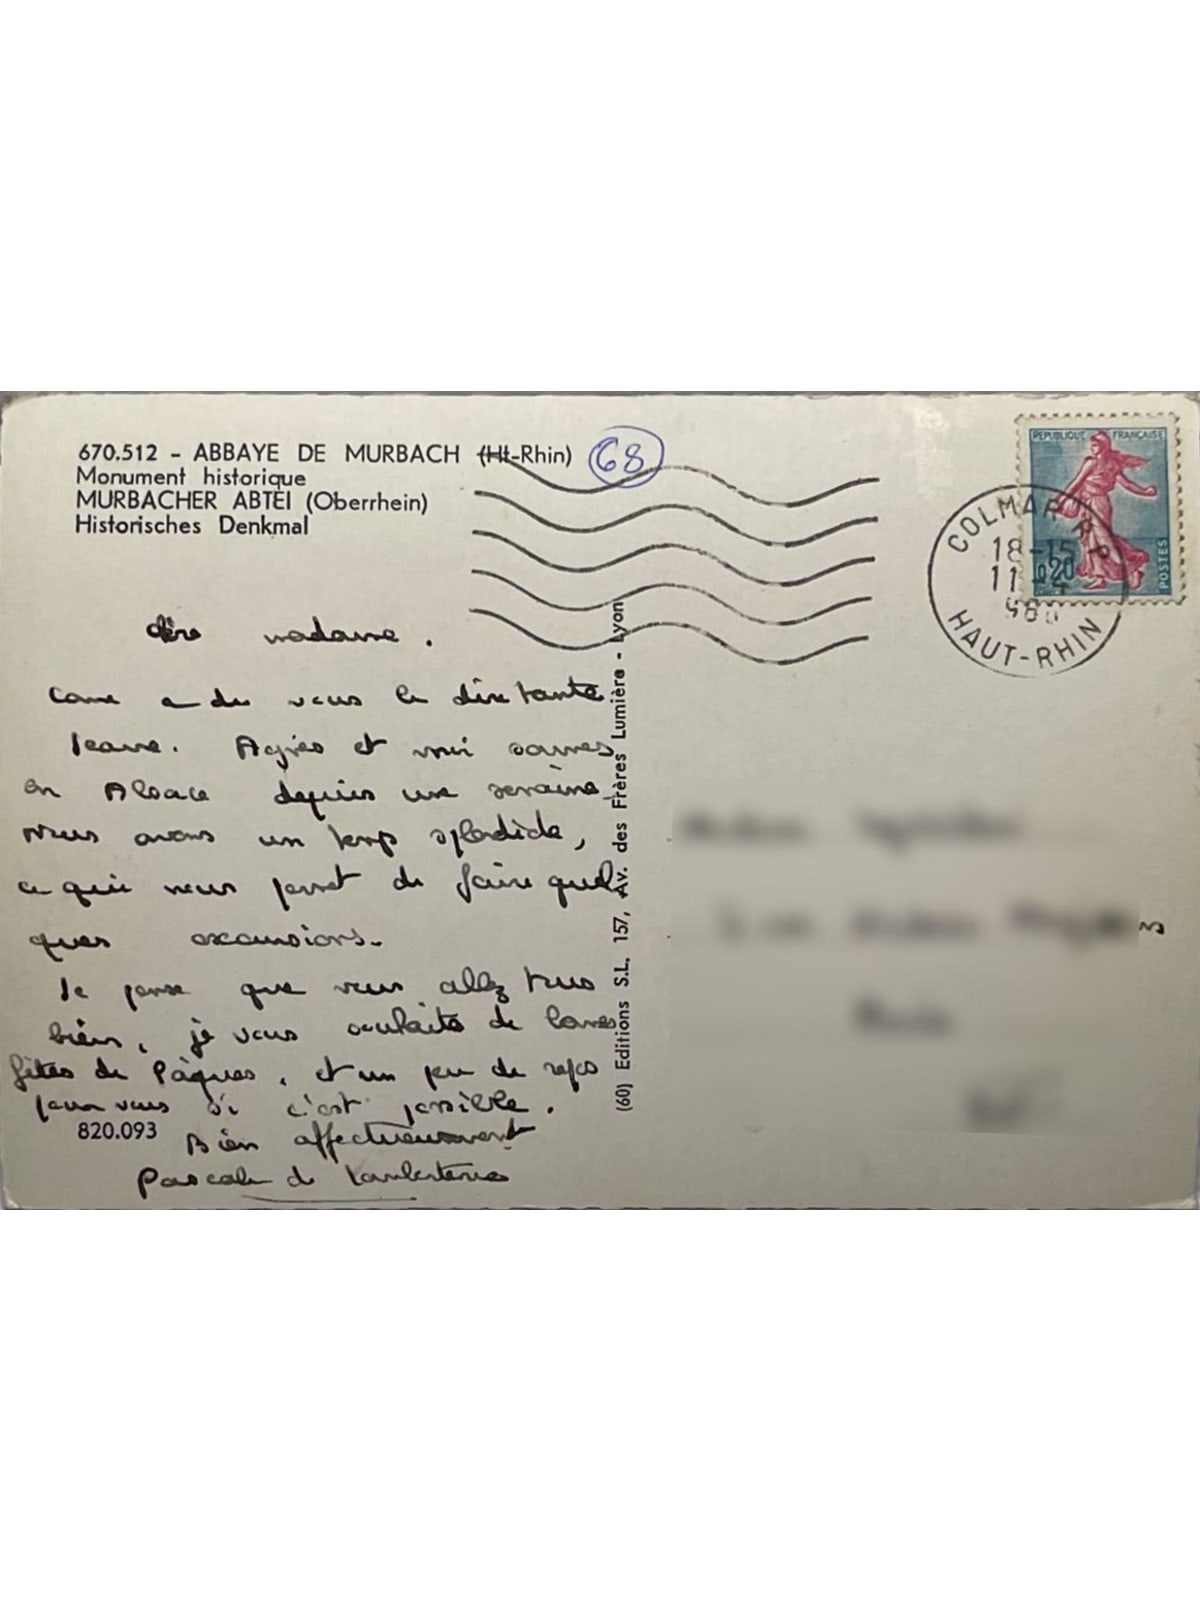 670.512 - ABBAYE DE MURBACH (Ht-Rhin)
Monument historique
MURBACHER ABTEI (Oberrhein)
Historisches Denkmal
68
REPUBLIQUE FRANÇAISE
0,20
POSTES
COLMAR R P
18-15
11-4
HAUT-RHIN
chère madame.
a du vous le dire tante
Jeanne. Agnès et moi sommes
en Alsace depuis une semaine.
nous avons un temps splendide,
ce qui nous permet de faire quel
ques excursions.
Je pense que vous allez tous
bien, je vous souhaite de bonnes
fêtes de Pâques, et un peu de repos
pour vous si c'est possible.
820.093
Bien affectueusement
Pascale de
(60) Editions S.L. 157, Av. des Frères Lumière - Lyon